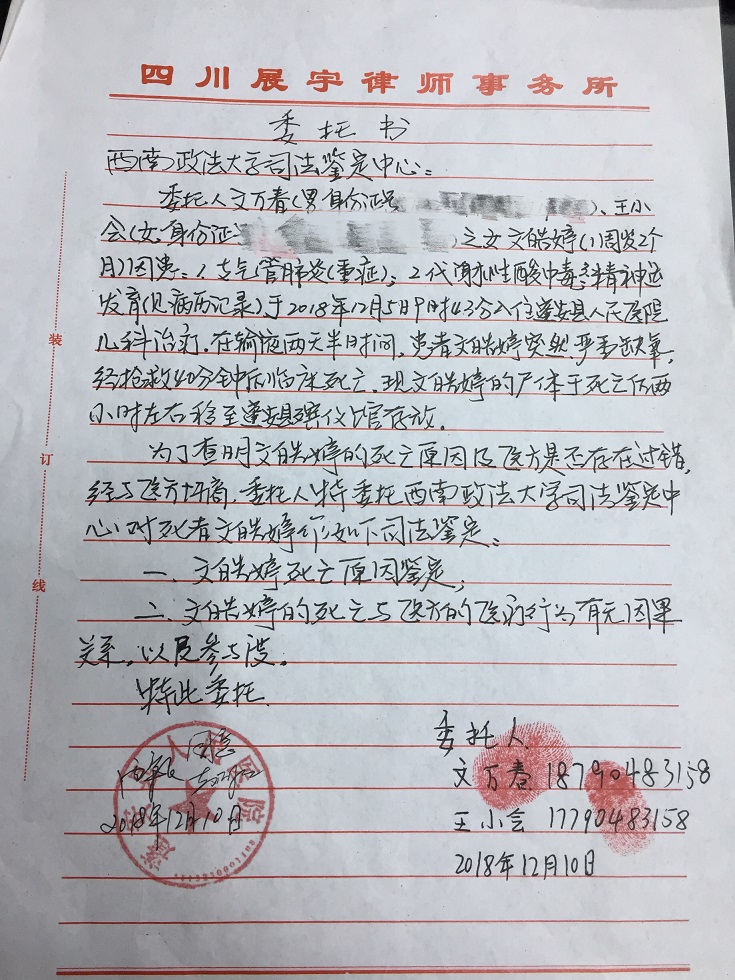 四川展宇律师事务所
委托书
西南政法大学司法鉴定中心:
委托人文万春(男身份证号 )、王小
会(女.身份证 )之女文皓婷(1周岁2个
月)因患:1.支气管肺炎(重症);2代谢性酸中毒;3精神运
发育(见病历记录)于2018年12月5日9时43分入住蓬安县人民医院
儿科治疗.在输液两天半时间,患者文皓婷突然严重缺氧,
经抢救40分钟后临床死亡.现文皓婷的尸体于死亡后两
小时左右移至蓬安县殡仪馆存放.
为了查明文皓婷的死亡原因及医方是否存在过错,
经与医方协商,委托人特委托西南政法大学司法鉴定中
心对死者文皓婷作如下司法鉴定:
一、文皓婷死亡原因鉴定;
二、文皓婷的死亡与医方的医疗行为有无因果
关系,以及参与度.
特此委托.
装
订
线
同意
2018年12月10日
委托人
文万春 18790483158
王小会 17790483158
2018年12月10日